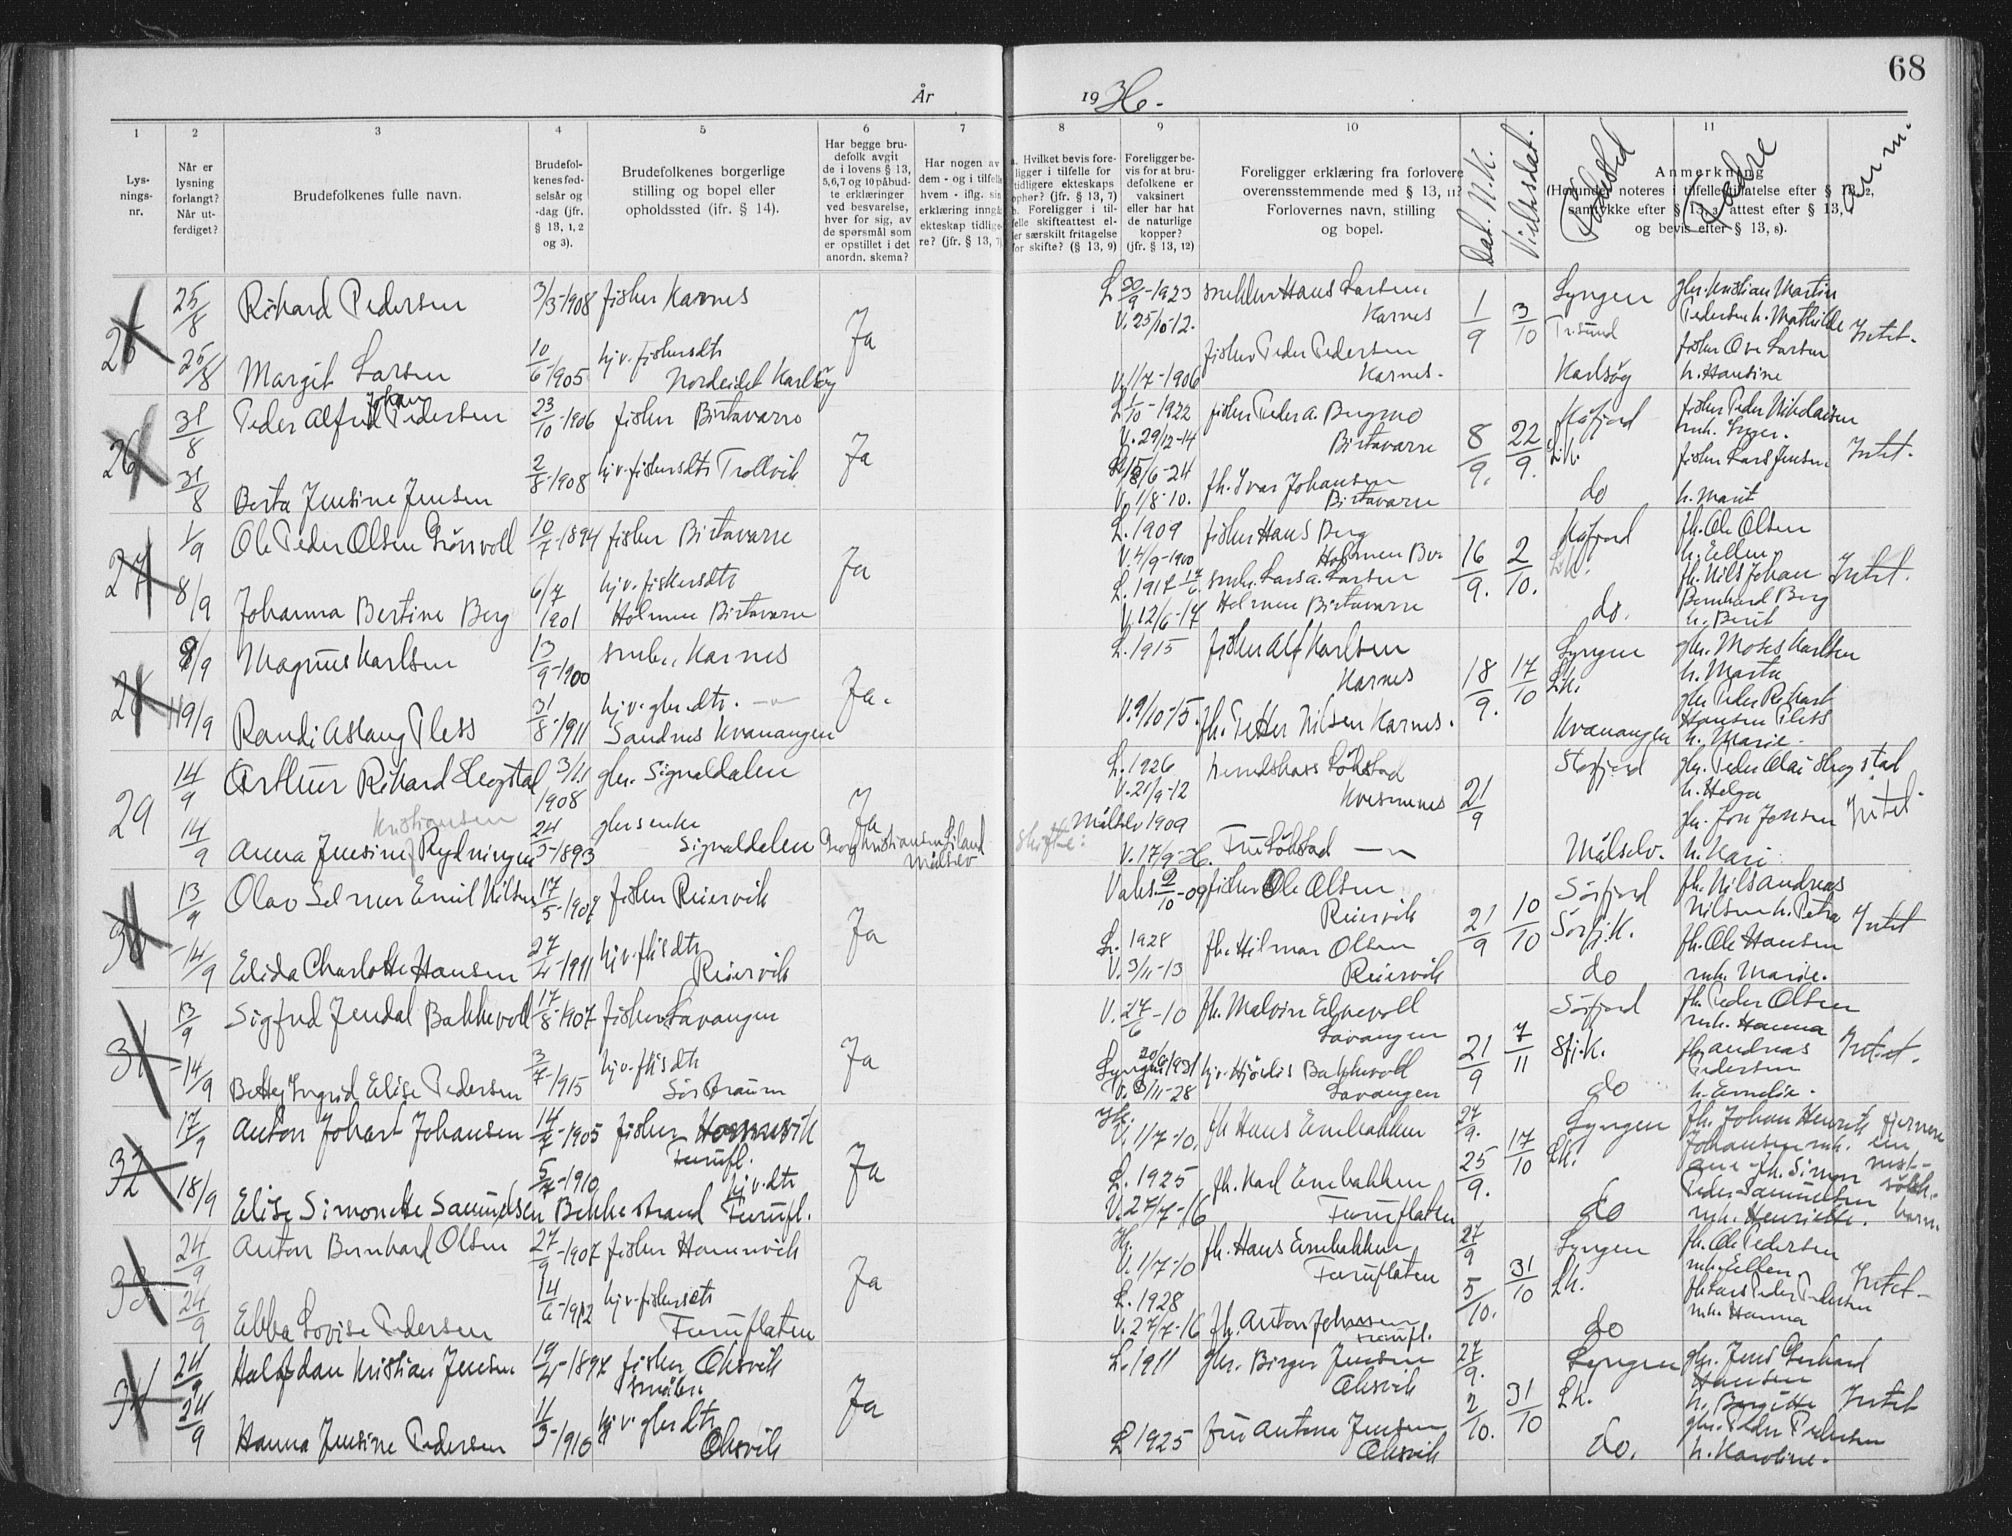 68
År 1936.
1 2 3 4 5 6 7 8 9 10 11
Lys-
nings-
nr.
Når er
lysning
forlangt?
Når ut-
ferdiget?
Brudefolkenes fulle navn.
Brudefol-
kenes fød-
selsår og
-dag (jfr.
§ 13, 1, 2
og 3).
Brudefolkenes borgerlige
stilling og bopel eller
opholdssted (jfr. § 14).
Har begge bru-
defolk avgit
de i lovens § 13,
5, 6, 7 og 10 påbud-
te erklæringer
ved besvarelse,
hver for sig, av
de spørsmål som
er opstillet i det
anordn. skema?
Har nogen av
dem - og i tilfelle
hvem - iflg. sin
erklæring inngå
ekteskap tidlige-
re? (jfr. § 13, 7)
a. Hvilket bevis fore-
ligger i tilfelle for
tidligere ekteskaps
ophør? (jfr. § 13, 7)
b. Foreligger i til-
felle skifteattest el-
er særskilt fritagelse
for skifte? (§ 13, 9)
Foreligger be-
vis for at bru-
defolkene er
vaksinert
eller har hat
de naturlige
kopper?
(jfr. § 13, 12)
Foreligger erklæring fra forlovere
overensstemmende med § 13, 11?
Forlovernes navn, stilling
og bopel.
Dat. N.K.
Vielsesdat.
Fødested
Fedre
Anm.
Anmerkning
(Herunder noteres i tilfelle tillatelse efter § 13, 2,
samtykke efter § 13, 3, attest efter § 13, 4
og bevis efter § 13, 8).
25
25/8 Rikard Pedersen 3/3-1908 fisker Karnes
Ja
L 30/9-1923 snekker Hans Larsen, Karnes
V. 25/10-12.
1/9 3/10
Lyngen
gbr. Kristian Martin
Pedersen h. Mathilde
Intet.
25/8 Margit Larsen 10/6-1905 hjv. fiskersdtr Nordeidet Karlsøy
V. 1/7-1906 fisker Peder Pedersen Karnes.
Tr.sund
Karlsøy
fisker Ove Larsen
h. Hansine
26
31/8 Peder Alfred Johan Pedersen 23/10-1906 fisker Birtavarre
Ja
L 1/10-1922 fisker Peder A. Bergmo Birtavarre
V. 29/12-14
8/9. 22/9.
Kåfjord
L.k.
fisker Peder Nikolaisen
Intet.
31/8 Berta Jensine Jensen 2/8-1908 hjv. fiskersdtr Trollvik
fh. Ivar Johansen Birtavarre
V. 1/8-10.
do
fisker Lars Jensen
h. Marit
27
1/9 Ole Peder Olsen Grønvoll 10/7-1894 fisker Birtavarre
Ja
L. 1909 fisker Hans Berg
V. 4/9-1900 Holmen Bv.
16/9. 2/10.
Kåfjord
L.k.
fh. Ole Olsen
h. Ellen
Intet.
8/9 Johanna Bertine Berg 6/7 1901 hjv. fiskersdtr Holmen Birtavarre
L. 1917 snek. Lars A. Larsen
V. 12/6-17 Holmen Birtavarre
do.
fh. Nils Johan
Bernhard Berg
h. Berit
28
9/9 Magnus Karlsen 13/9-1900 snek., Karnes
Ja.
L. 1915 fisker Alf Karlsen Karnes
18/9. 17/10
Lyngen
Lk.
gbr. Moses Karlsen
h. Marta
19/9 Randi Aslaug Pless 31/8-1911 hjv. gbr.dtr. Sandnes Kvænangen
V. 9/10-15. fh. Petter Nilsen Karnes.
Kvænangen
gbr. Peder Rikart
Hansen Pless
h. Marie.
29
14/9 Arthur Rikard Hegstad 3/11 1908 gbr. Signaldalen
Ja
L. 1926
V. 21/9-12
Kvesmenes
21/9
Storfjord
gbr. Peder Olai Hegstad
h. Helga
Intet.
Kristiansen
14/9 Anna Jensine Rydningen 24/3-1893 gbrsenke Signaldalen
Georg Kristiansen Liland Målselv
Skifte:
Målselv 1909
V. 17/9-36. Fru Løkstad
Målselv.
gbr. Jon Jensen
h. Kari
30
13/9 Olav Selmer Emil Nilsen 17/5-1907 fisker Reiervik
Ja
Vaks 9/10-09 fisker Ole Olsen Reiervik
21/9 10/10
Sørfjord
Sørfj.K.
fh. Nils Andreas
Nilsen h. Petra
Intet
14/9 Elida Charlotte Hansen 27/4-1911 hjv. fiskdtr Reiervik
L. 1928 fh. Hilmar Olsen
V. 3/11-13 Reiervik
do
fh. Ole Hansen
mh. Marie.
31
13/9 Sigfred Jendal Bakkevoll 17/8-1907 fisker Lavangen
Ja
V. 27/6-10 fh. Malvin Elvevoll Lavangen
21/9 7/11
Sørfjord
Sfj.K.
fh. Peder Olsen
mh. Hanna
Intet.
14/9 Betty Ingrid Elise Pedersen 3/7-1915 hjv. fiskdtr Sørstraum
Lyngen 20/9 1931 hjv. Hjørdis Bakkevoll
V. 3/11-28 Lavangen
do
fh. Andreas
Pedersen
h. Emelie.
32
17/9 Anton Johart Johansen 14/7-1905 fisker Hamnvik Furufl.
Ja
V. 1/7-10. fh Hans Enebakken
27/9. 25/9. 17/10
Lyngen
Lk.
fh. Johan Henrik
Johansen mh.
Ane
fjernere
enn
nest-
søsk.-
barn.
18/9 Elise Simonette Samuelsen 5/7-1910 Bekkestrand hjv. dtr Furufl.
L. 1925 fh. Karl Enebakken
V. 27/7-16 Furuflaten
do
fh. Simon
Peder Samuelsen
mh. Henriette.
33
24/9 Anton Bernhard Olsen 27/9-1907 fisker Hamnvik
Ja
V. 1/7-10 fh. Hans Enebakken Furuflaten
27/9 5/10. 31/10
Lyngen
Lk.
fh. Ole Pedersen
mh. Ellen
Intet.
24/9 Ebba Lovise Pedersen 14/6-1912 hjv. fiskersdtr Furuflaten
L. 1928
V. 27/7-16 fh. Anton Johansen Furufl.
do
fh Lars Peder Pedersen
mh. Hanna
34
24/9 Halfdan Kristian Jensen 19/4-1897 fisker Oksvik småbr.
Ja
L. 1911 gbr. Birger Jensen Oksvik
27/9. 2/10. 31/10
Lyngen
Lk.
gbr. Jens Gerhard
Hansen
h. Birgitte
Intet
24/9 Hanna Jensine Pedersen 11/3-1910 hjv. gbrdtr Oksvik
L 1925 fru Antona Jensen Oksvik
do.
gbr. Peder Pedersen
h. Karoline.